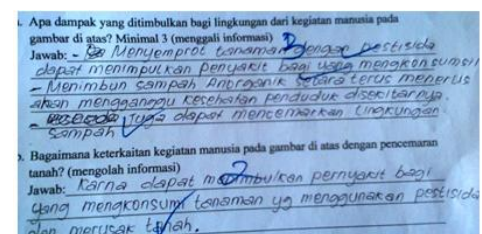 Apa dampak yang ditimbulkan bagi lingkungan dari kegiatan manusia pada
gambar di atas? Minimal 3 (menggali informasi)
Jawab: - Menyemprot tanaman dengan pestisida
dapat menimpulkan penyakit bagi yang mengkonsumsi
- Menimbun sampah Anorganik setara terus menerus
akan mengganggu kesehatan penduduk disekitarnya.
- juga dapat mencemarkan lingkungan
sampah
b. Bagaimana keterkaitan kegiatan manusia pada gambar di atas dengan pencemaran
tanah? (mengolah informasi)
Jawab: Karna dapat menimbulkan pernyakit bagi
yang mengkonsumsi tanaman yg menggunakan pestisida
dan merusak tanah.